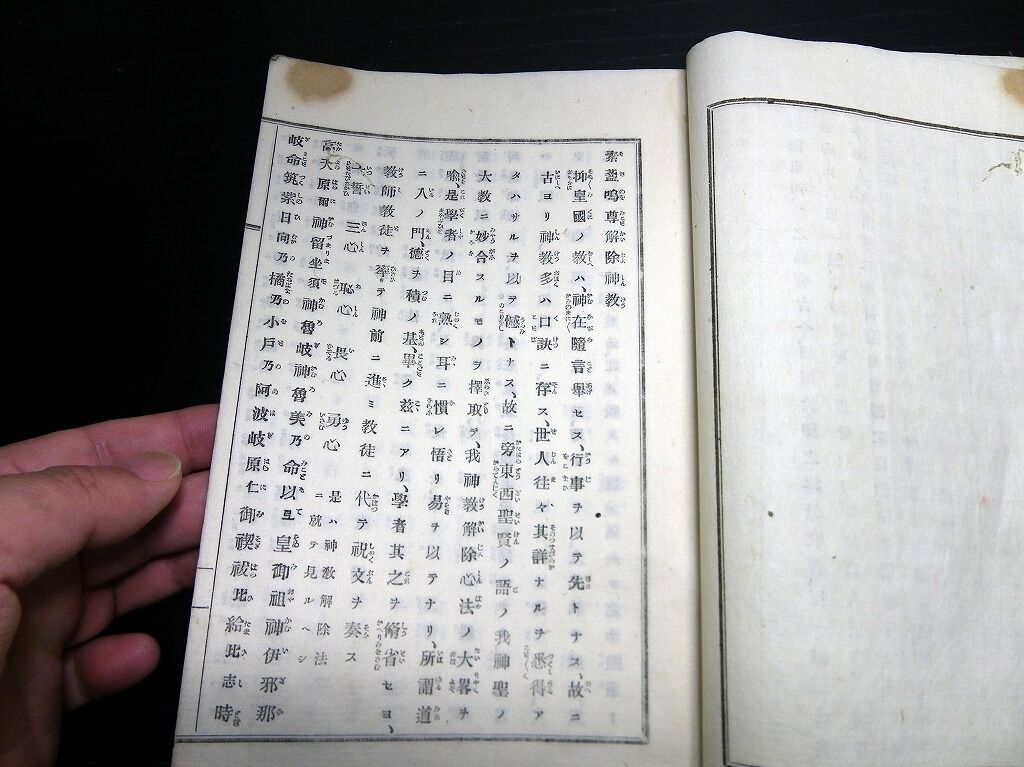 素盞嗚尊解除神教
抑皇國ノ教ハ、神在隨言擧セス、行事ヲ以テ先トナス、故ニ
古ヨリ神教多ハ口訣ニ存ス、世人往々其詳ナルヲ悉得ア
タハサルヲ以テ憾トナス、故ニ旁東西聖賢ノ語ノ我神聖ノ
大教ニ妙合スルモノヲ擇取テ、我神教解除心法ノ大畧ヲ
喩、是學者ノ目ニ熟シ耳ニ慣レ悟リ易ヲ以テナリ、所謂道
ニ入ノ門、德ヲ積ノ基、畢ク茲ニアリ、學者其之ヲ脩省セヨ、
教師教徒ヲ率テ神前ニ進ミ教徒ニ代テ祝文ヲ奏ス
一誓白 三心 恥心 畏心 勇心 是ハ神教解除法ニ就テ見ルヘシ
高天原爾神留坐須神魯岐神魯美乃命以皇御祖神伊邪那
岐命筑紫日向乃橘乃小戶乃阿波岐原仁御禊祓比給比志時